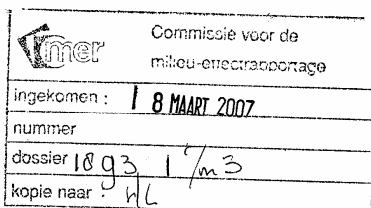 mer
Commissie voor de
milieu-effectrapportage
ingekomen : 18 MAART 2007
nummer
dossier 1893 1 t/m 3
kopie naar :